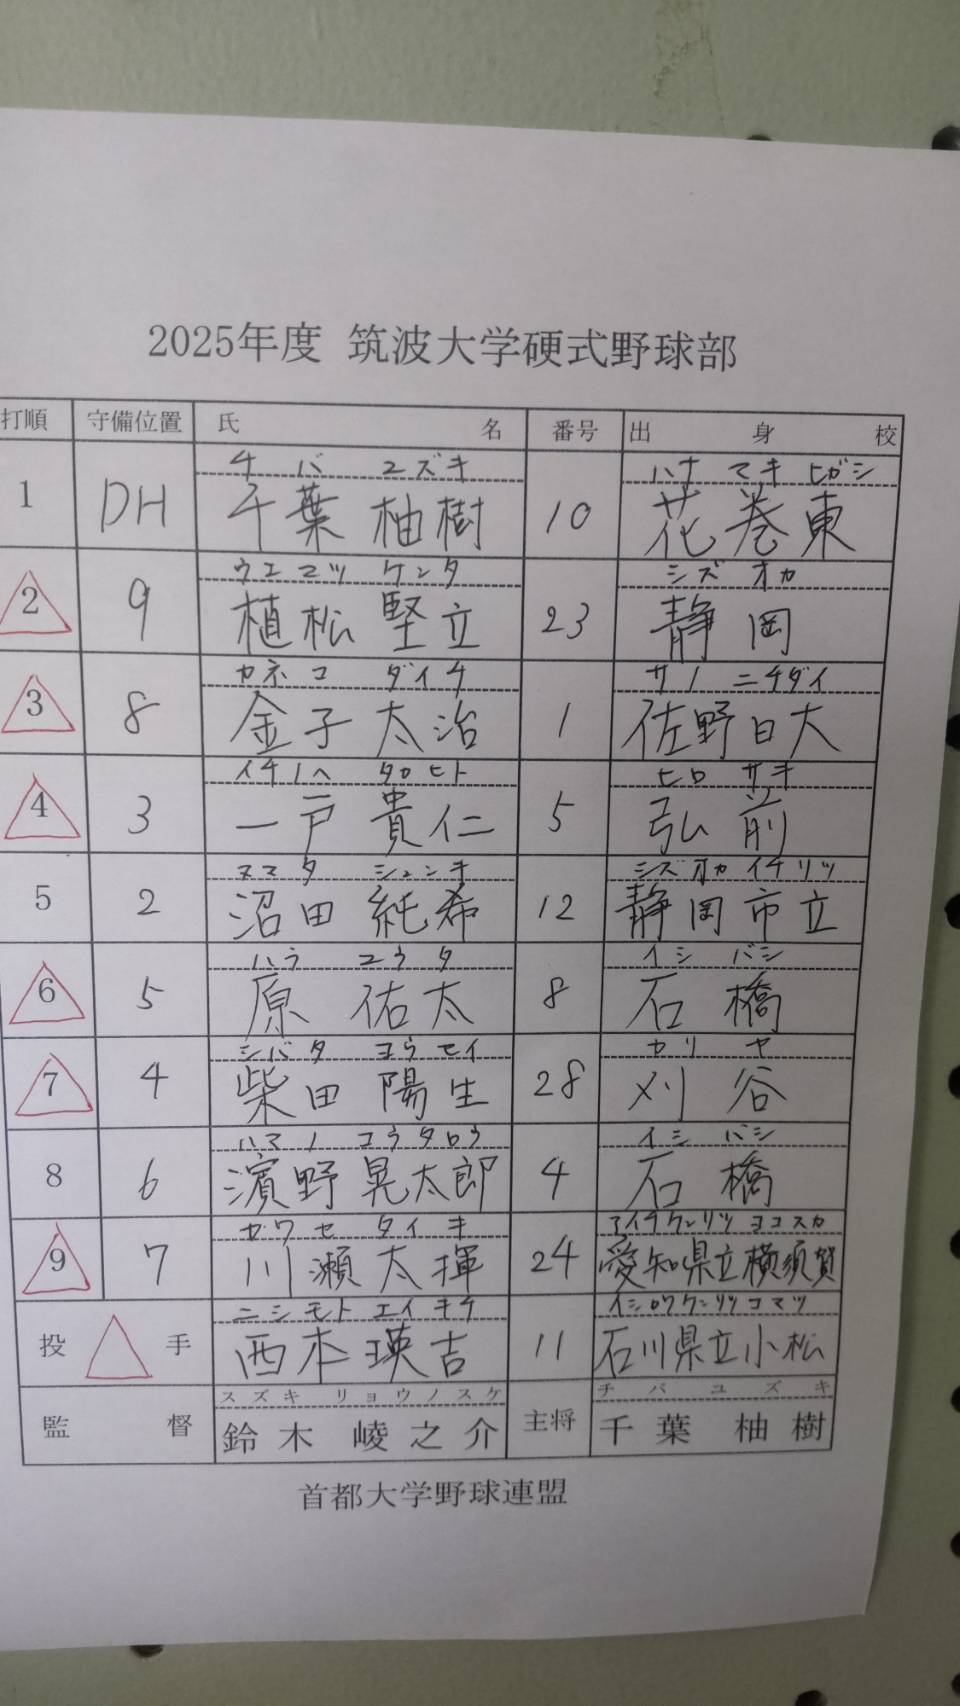 2025年度 筑波大学硬式野球部
打順 守備位置 氏名 番号 出身校
チバ ユズキ ハナマキヒガシ
1 DH 千葉柚樹 10 花巻東
ウエマツ ケンタ シズオカ
2 9 植松堅立 23 静岡
カネコ ダイチ サノニチダイ
3 8 金子太治 1 佐野日大
イチノヘ タカヒト ヒロサキ
4 3 一戸貴仁 5 弘前
ヌマタ シュンキ シズオカイチリツ
5 2 沼田純希 12 静岡市立
ハラ ユウタ イシバシ
6 5 原佑太 8 石橋
シバタ ヨウセイ カリヤ
7 4 柴田陽生 28 刈谷
ハマノ コウタロウ イシバシ
8 6 濱野晃太郎 4 石橋
カワセ タイキ アイチケンリツ ヨコスカ
9 7 川瀬太揮 24 愛知県立横須賀
ニシモト エイキチ イシカワケンリツコマツ
投手 西本瑛吉 11 石川県立小松
スズキ リョウノスケ チバ ユズキ
監督 鈴木崚之介 主将 千葉柚樹
首都大学野球連盟